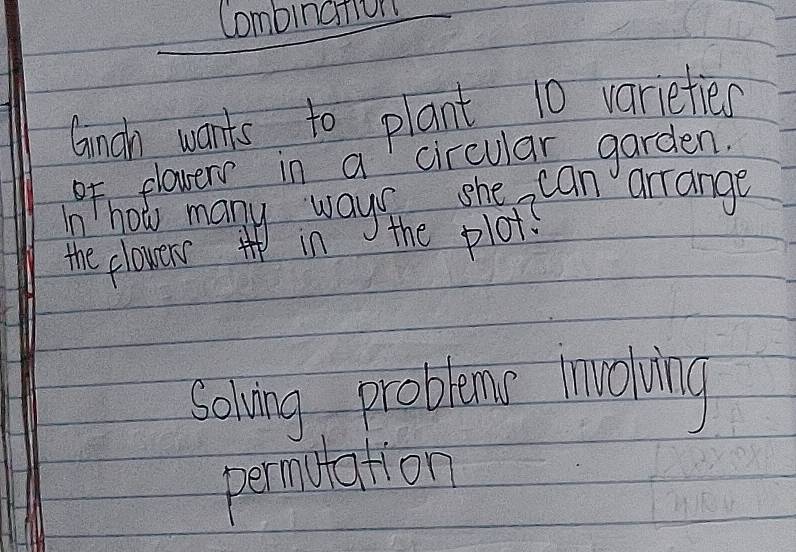 Combination
Ginah wants to plant 10 varieties
of flowers in a circular garden.
In how many ways she can arrange
the flowers in the plot?
Solving problems involving
permutation